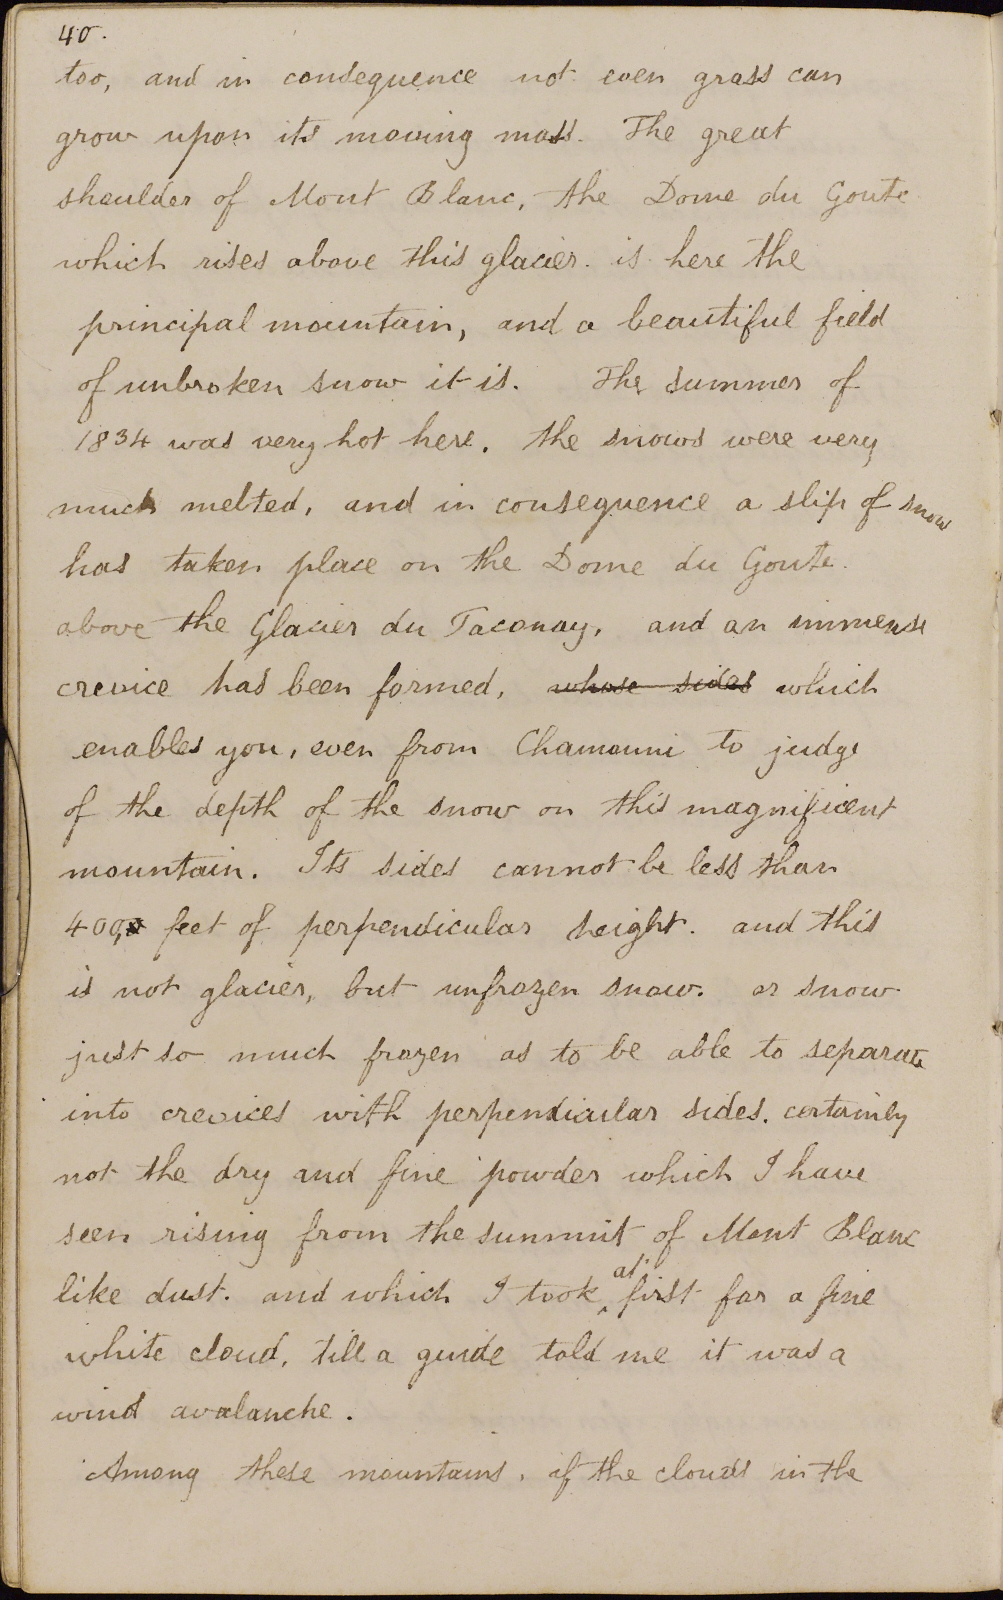 40.
too, and in consequence not even grass can
grow upon its moving mass. The great
shoulder of Mont Blanc, the Dome du Goute
which rises above this glacier. is here the
principal mountain, and a beautiful field
of unbroken snow it is. The summer of
1834 was very hot here. the snows were very
much melted, and in consequence a slip of snow
has taken place on the Dome du Goute.
above the Glacier du Taconay, and an immense
crevice has been formed, whose sides which
enables you, even from Chamouni to judge
of the depth of the snow on this magnificent
mountain. Its sides cannot be less than
400 feet of perpendicular height. and this
is not glacier, but unfrozen snow. or snow
just so much frozen as to be able to separate
into crevices with perpendicular sides. certainly
not the dry and fine powder which I have
seen rising from the summit of Mont Blanc
like dust. and which I took at first for a fine
white cloud, till a guide told me it was a
wind avalanche.
Among these mountains, if the clouds in the